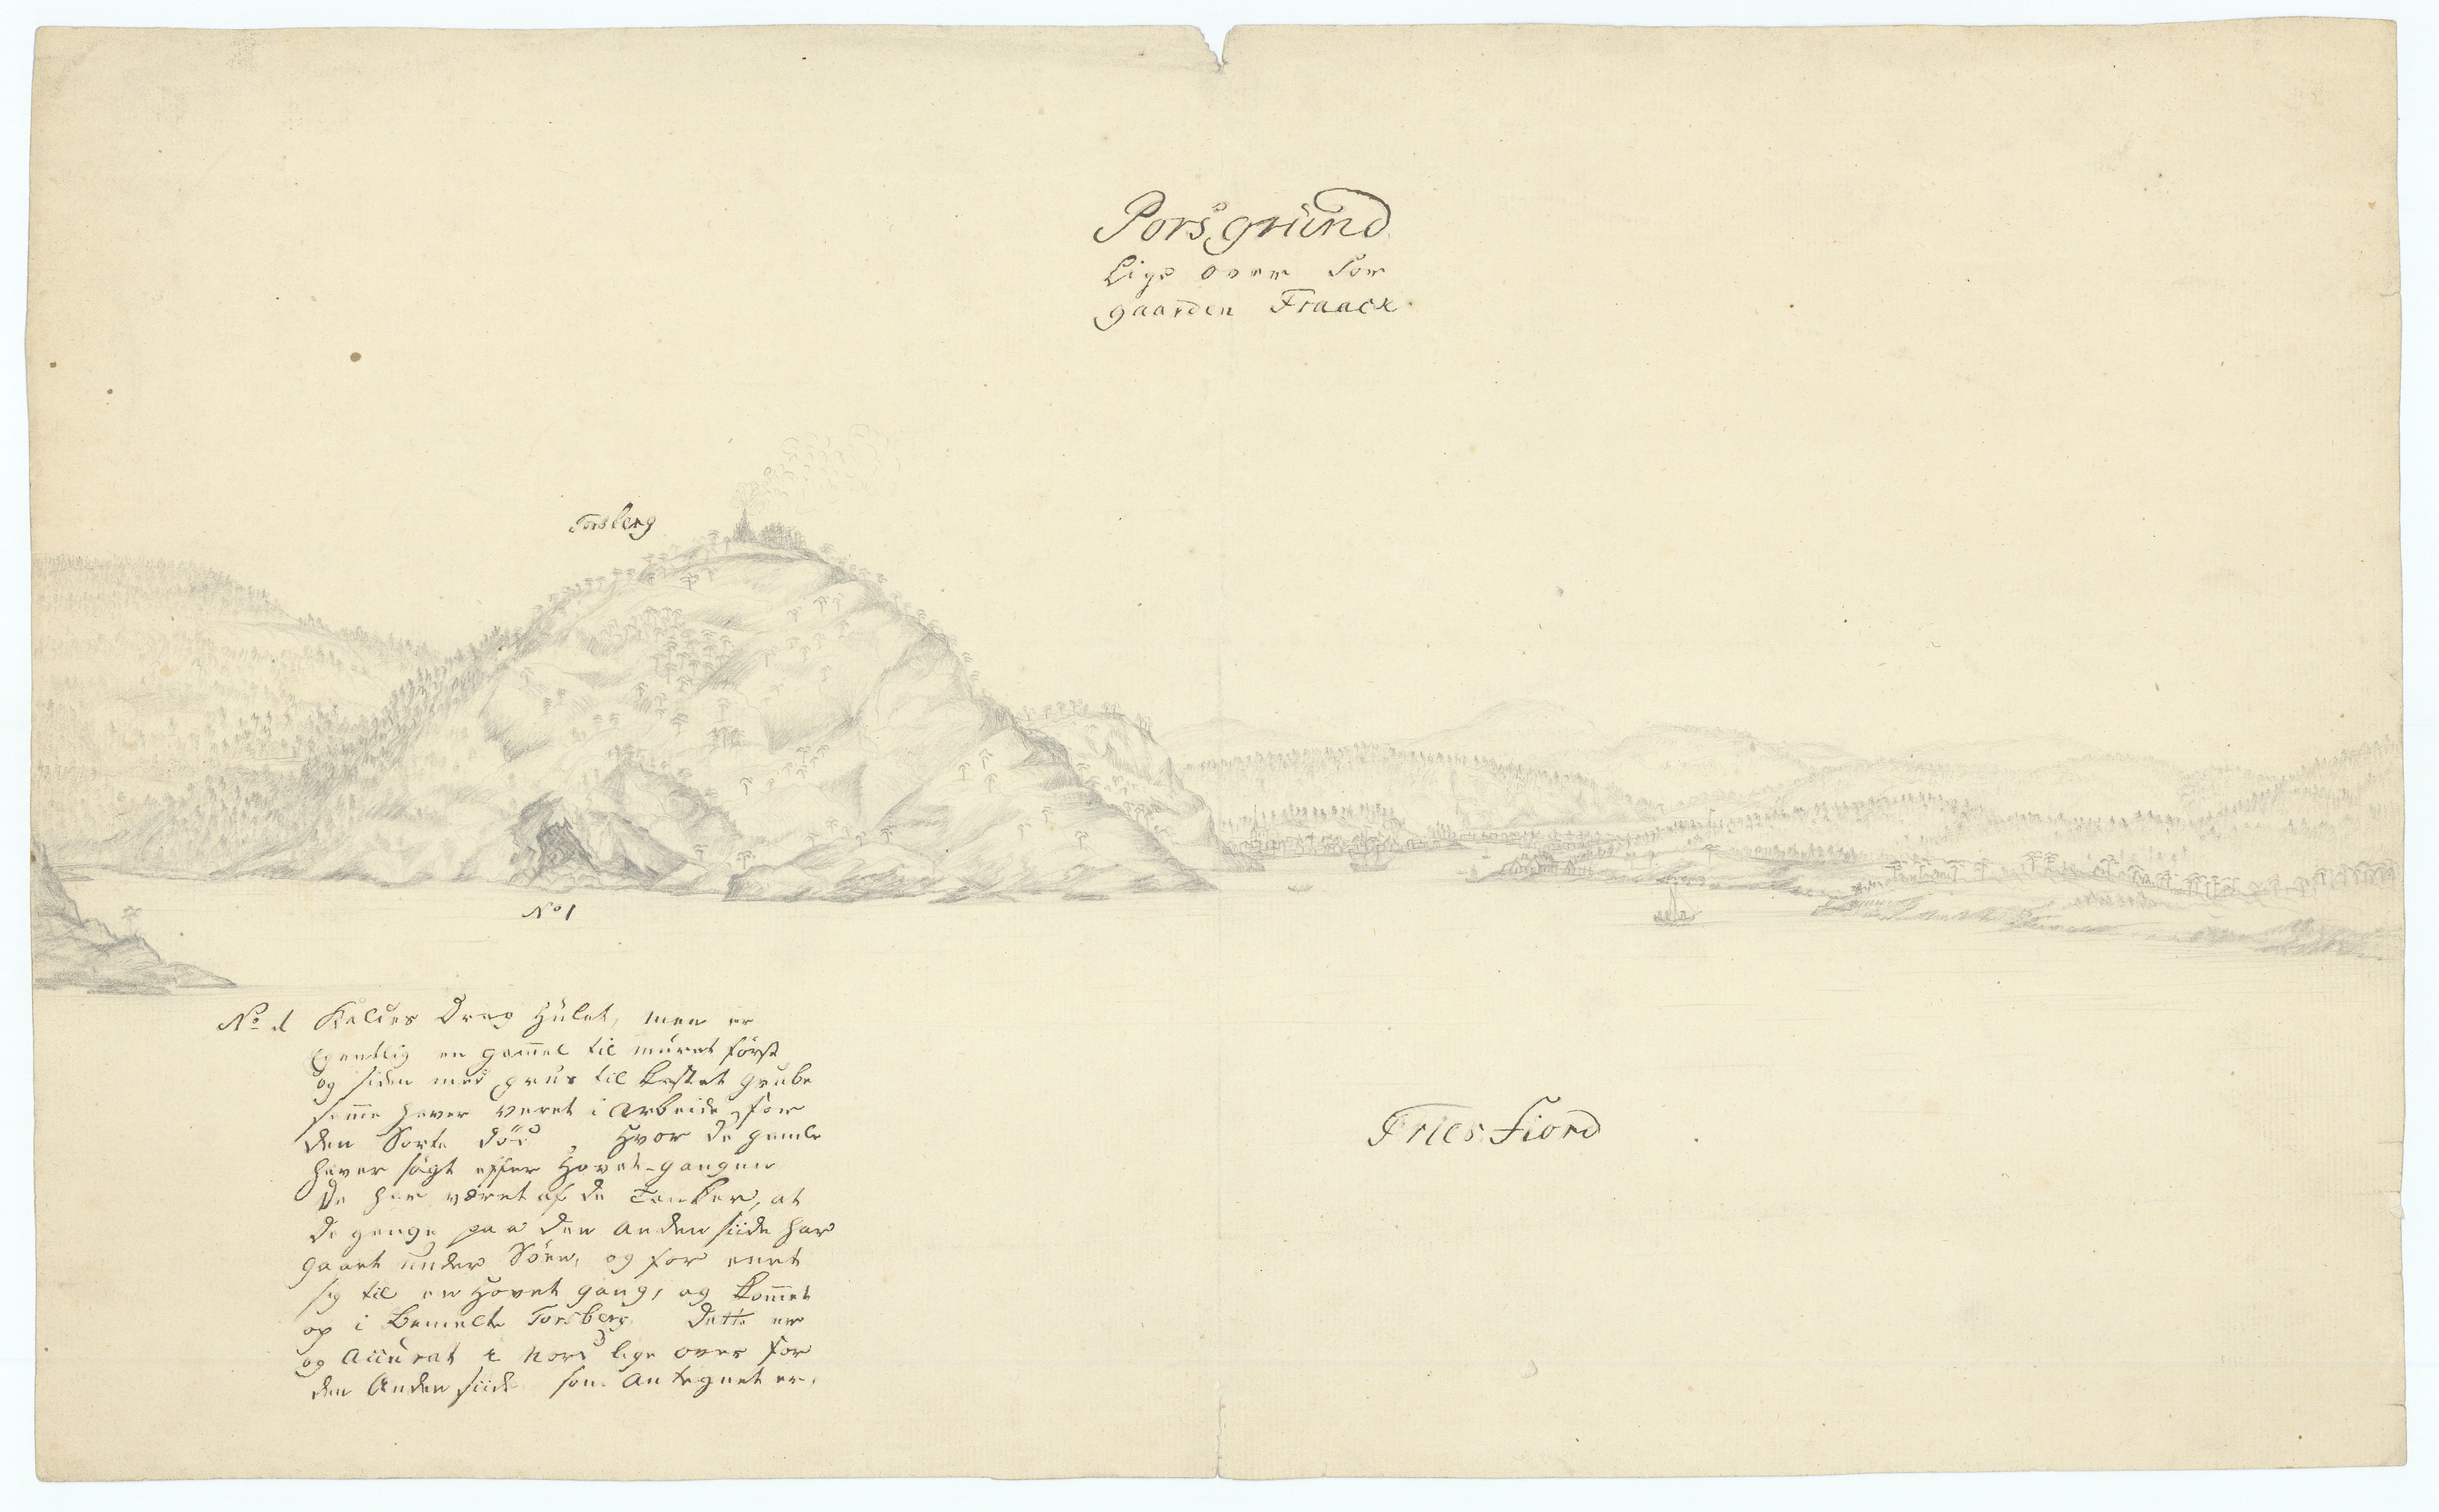 Porsgrund
Lige over for
gaarden Fraack
Torsberg
No 1
No 1 Kaldes Drag Hulet, men er
egentlig en gammel til muret först
og siden med grus til kastet grube
samme haver veret i Arbeide for
den Sorte död, Hvor de gamle
haver sögt efter Hovet-gangen
De har været af de Tanker, at
de gange paa den anden siide har
gaaet under Söen, og for enet
sig til en Hovet gang, og kommet
op i bemelte Torsberg. Dette er
og Accurat i Nord lige over for
den Anden siide som Antegnet er.
Fries Fiord